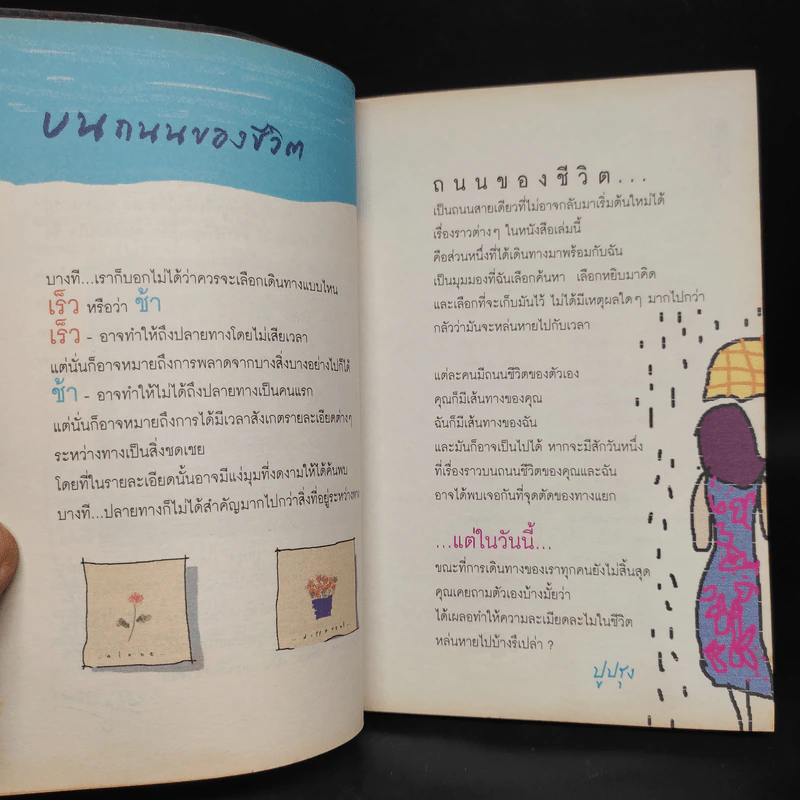 บนถนนของชีวิต
บางที...เราก็บอกไม่ได้ว่าควรจะเลือกเดินทางแบบไหน
เร็ว หรือว่า ช้า
เร็ว - อาจทำให้ถึงปลายทางโดยไม่เสียเวลา
แต่นั่นก็อาจหมายถึงการพลาดจากบางสิ่งบางอย่างไปก็ได้
ช้า - อาจทำให้ไม่ได้ถึงปลายทางเป็นคนแรก
แต่นั่นก็อาจหมายถึงการได้มีเวลาสังเกตรายละเอียดต่างๆ
ระหว่างทางเป็นสิ่งชดเชย
โดยที่ในรายละเอียดนั้นอาจมีแง่มุมที่งดงามให้ได้ค้นพบ
บางที...ปลายทางก็ไม่ได้สำคัญมากไปกว่าสิ่งที่อยู่ระหว่างทาง
alone
different
ถนนของชีวิต...
เป็นถนนสายเดียวที่ไม่อาจกลับมาเริ่มต้นใหม่ได้
เรื่องราวต่างๆ ในหนังสือเล่มนี้
คือส่วนหนึ่งที่ได้เดินทางมาพร้อมกับฉัน
เป็นมุมมองที่ฉันเลือกค้นหา เลือกหยิบมาคิด
และเลือกที่จะเก็บมันไว้ ไม่ได้มีเหตุผลใดๆ มากไปกว่า
กลัวว่ามันจะหล่นหายไปกับเวลา
แต่ละคนมีถนนชีวิตของตัวเอง
คุณก็มีเส้นทางของคุณ
ฉันก็มีเส้นทางของฉัน
และมันก็อาจเป็นไปได้ หากจะมีสักวันหนึ่ง
ที่เรื่องราวบนถนนชีวิตของคุณและฉัน
อาจได้พบเจอกันที่จุดตัดของทางแยก
...แต่ในวันนี้...
ขณะที่การเดินทางของเราทุกคนยังไม่สิ้นสุด
คุณเคยถามตัวเองบ้างมั้ยว่า
ได้เผลอทำให้ความละเมียดละไมในชีวิต
หล่นหายไปบ้างรึเปล่า ?
ปูปรุง